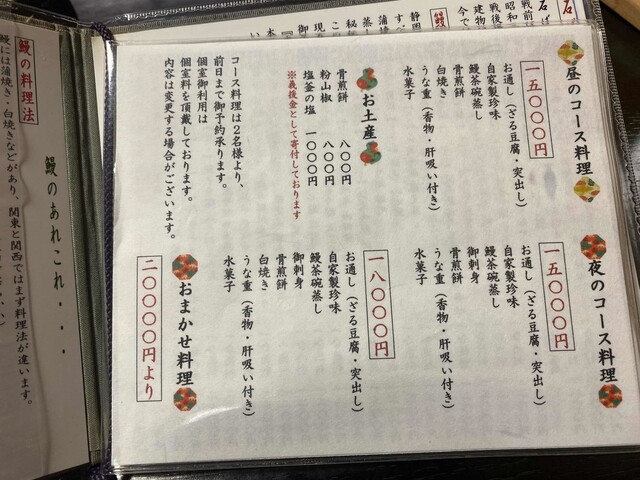 昼のコース料理
一五〇〇〇円
お通し（ざる豆腐・突出し）
自家製珍味
鰻茶碗蒸し
骨煎餅
白焼き
うな重（香物・肝吸い付き）
水菓子
お土産
骨煎餅 八〇〇円
粉山椒 八〇〇円
塩釜の塩 一〇〇〇円
※義後金として寄付しております
コース料理は２名様より、
前日まで御予約承ります。
個室御利用は
個室料を頂戴しております。
内容は変更する場合がございます。
夜のコース料理
一五〇〇〇円
お通し（ざる豆腐・突出し）
自家製珍味
鰻茶碗蒸し
御刺身
骨煎餅
うな重（香物・肝吸い付き）
水菓子
一八〇〇〇円
お通し（ざる豆腐・突出し）
自家製珍味
鰻茶碗蒸し
御刺身
骨煎餅
白焼き
うな重（香物・肝吸い付き）
水菓子
おまかせ料理
二〇〇〇〇円より
鰻のあれこれ・・・
鰻の料理法
鰻には蒲焼き・白焼きなどがあり、関東と関西ではまず料理法が違います。